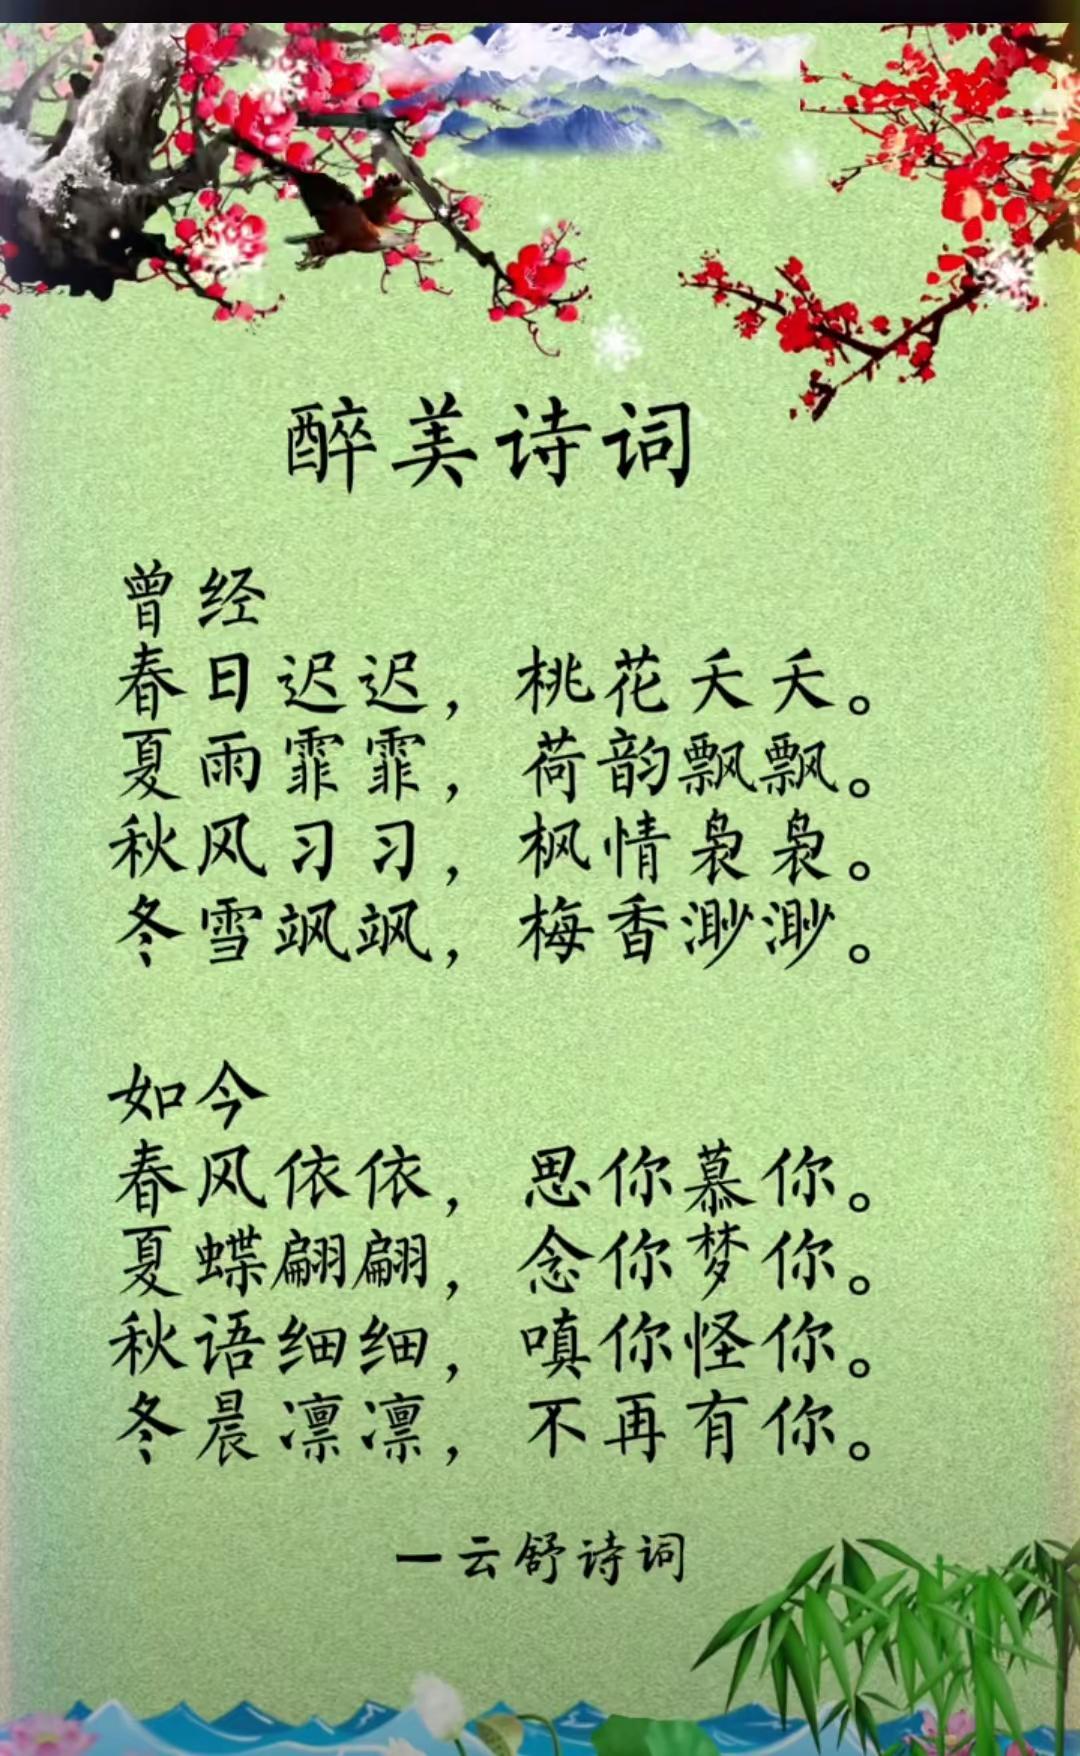 醉美诗词
曾经
春日迟迟，桃花夭夭。
夏雨霏霏，荷韵飘飘。
秋风习习，枫情袅袅。
冬雪飒飒，梅香渺渺。
如今
春风依依，思你慕你。
夏蝶翩翩，念你梦你。
秋语细细，嗔你怪你。
冬晨凛凛，不再有你。
一云舒诗词